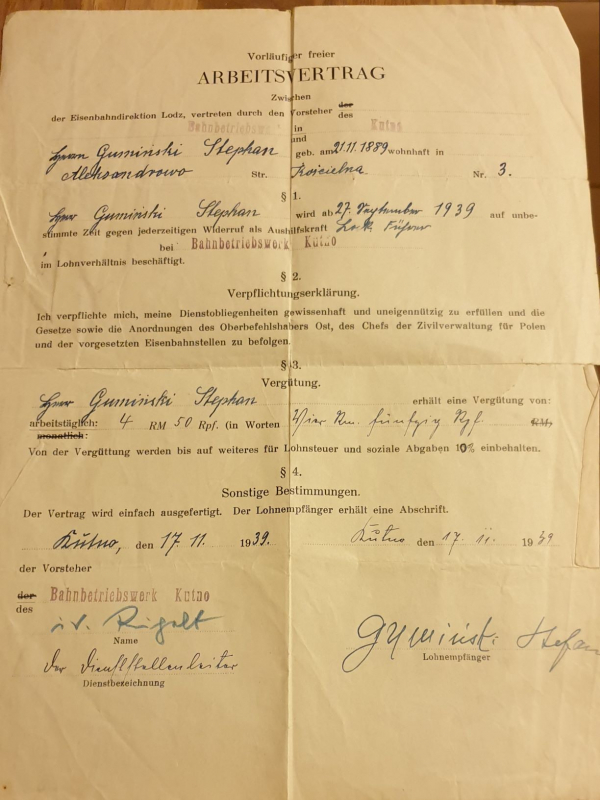 Vorläufiger freier
ARBEITSVERTRAG
Zwischen
der Eisenbahndirektion Lodz, vertreten durch den Vorsteher der des
Bahnbetriebswerk in Kutno
und
Herrn Gumiński Stephan geb. am 21.11.1889 wohnhaft in
Aleksandrowo Str. Kościelna Nr. 3.
§ 1.
Herr Gumiński Stephan wird ab 27. September 1939 auf unbe-
stimmte Zeit gegen jederzeitigen Widerruf als Aushilfskraft Lok. Führer
bei Bahnbetriebswerk Kutno
im Lohnverhältnis beschäftigt.
§ 2.
Verpflichtungserklärung.
Ich verpflichte mich, meine Dienstobliegenheiten gewissenhaft und uneigennützig zu erfüllen und die
Gesetze sowie die Anordnungen des Oberbefehlshabers Ost, des Chefs der Zivilverwaltung für Polen
und der vorgesetzten Eisenbahnstellen zu befolgen.
§ 3.
Vergütung.
Herr Gumiński Stephan erhält eine Vergütung von:
arbeitstäglich: 4 RM 50 Rpf. (in Worten Vier Rm. fünfzig Rpf. RM)
monatlich:
Von der Vergüttung werden bis auf weiteres für Lohnsteuer und soziale Abgaben 10% einbehalten.
§ 4.
Sonstige Bestimmungen.
Der Vertrag wird einfach ausgefertigt. Der Lohnempfänger erhält eine Abschrift.
Kutno, den 17. 11. 1939. Kutno den 17. 11. 1939
der Vorsteher
der Bahnbetriebswerk Kutno
des
i.V.
Name
Gumiński Stefan
Lohnempfänger
Der Dienststellenleiter
Dienstbezeichnung